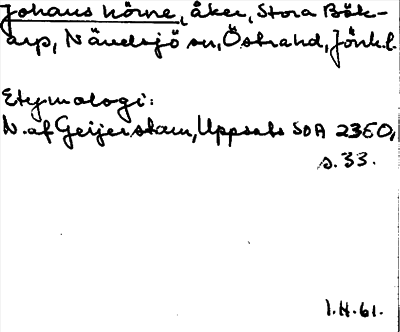 Johans hörne, åker, Stora Bök-
arp, Nävelsjö sn, Östra hd, Jönk.l.
Etymologi:
N. af Geijerstam, Uppsats SOA 2350,
s. 33.
1.H.61.